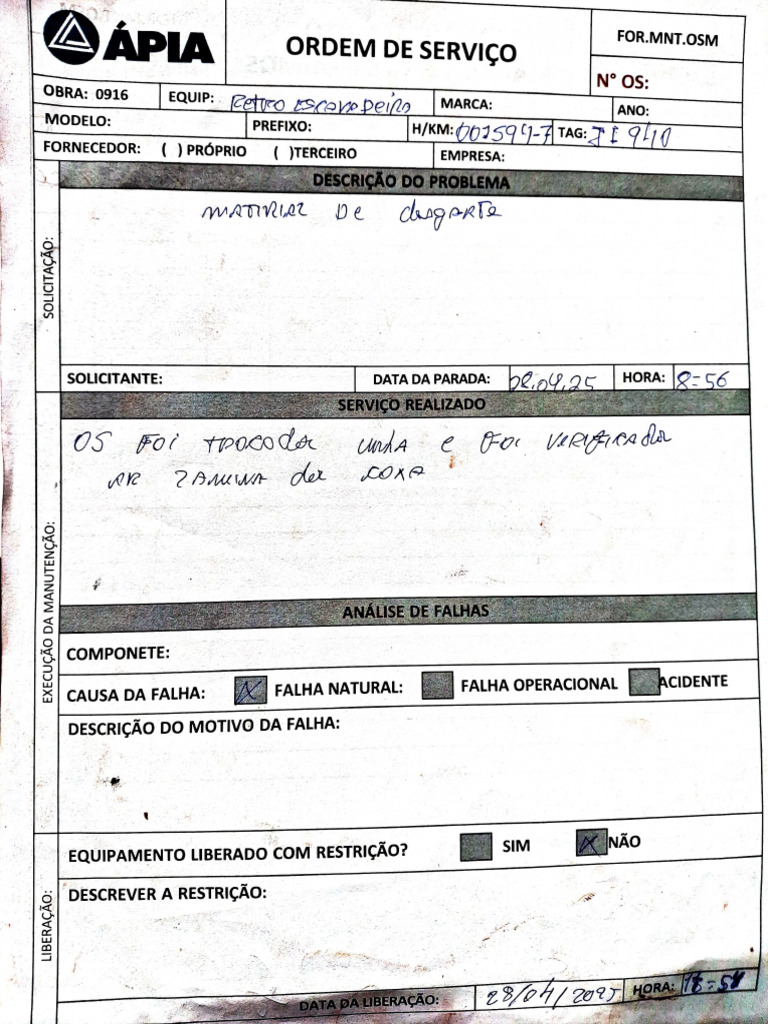 ÁPIA
ORDEM DE SERVIÇO
FOR.MNT.OSM
N° OS:
OBRA: 0916
EQUIP: Retro escavadeira
MARCA:
ANO:
MODELO:
PREFIXO:
H/KM: 001594-7
TAG:
FORNECEDOR: ( ) PRÓPRIO ( )TERCEIRO
EMPRESA:
DESCRIÇÃO DO PROBLEMA
SOLICITAÇÃO:
MATIRIAL De desgaste
SOLICITANTE:
DATA DA PARADA: 28.04.25
HORA: 8=56
SERVIÇO REALIZADO
EXECUÇÃO DA MANUTENÇÃO:
OS FOI TROCOda unha e FOI VERIFICAda
AR LAMINA da COXA
ANÁLISE DE FALHAS
COMPONETE:
CAUSA DA FALHA: X FALHA NATURAL: FALHA OPERACIONAL ACIDENTE
DESCRIÇÃO DO MOTIVO DA FALHA:
LIBERAÇÃO:
EQUIPAMENTO LIBERADO COM RESTRIÇÃO? SIM X NÃO
DESCREVER A RESTRIÇÃO:
DATA DA LIBERAÇÃO: 28/04/2025
HORA: